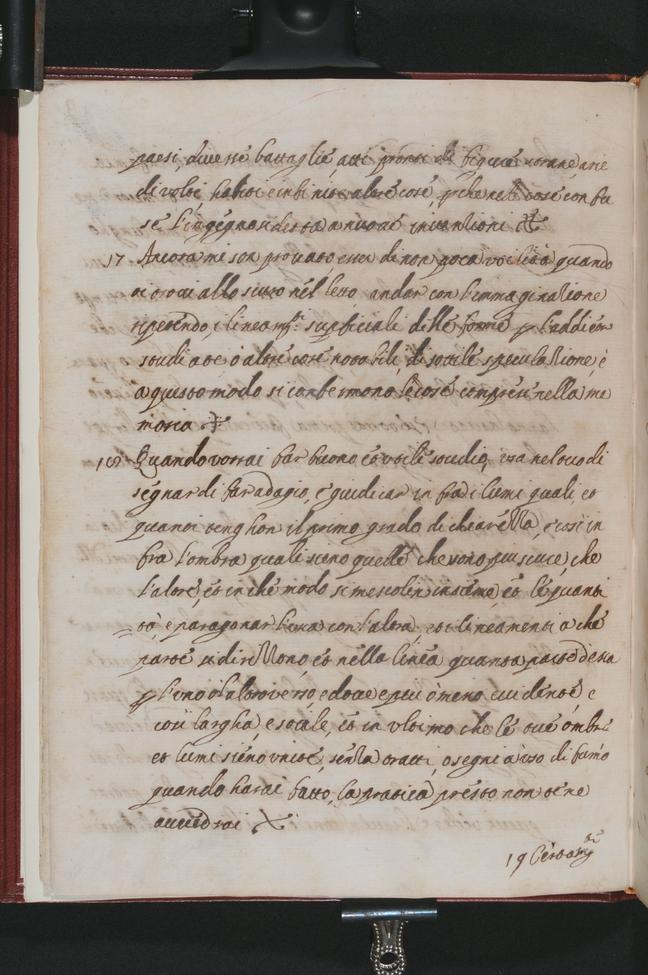 paesi, diverse battaglie, atti pronti di figure strane, arie
di volti, habiti et infinite altre cose, p che nelle cose confu
se l'ingegno si desta a nuove inventioni
17 Ancora mi son provato esser di non poca utilità quando
ti trovi allo scuro nel letto andar con l'immaginatione
ripetendo i lineamti superficiali delle forme p l'addietro
studiate, o altre cose notabili, di sottile speculatione, e
a questo modo si confermono le cose comprese nella me
moria
18 Quando vorrai far buono et utile studio, usa nel tuo di
segnar di far adagio, e giudicar in fra i lumi quali, et
quanti tenghon il primo grado di chiarezza, e cosi in
fra l'ombre quali sieno quelle che sono piu scure, che
l'altre, et in che modo si mescolin insieme, et le quanti
tà e paragonar l'una con l'altra, et i lineamenti a che
parte si dirizzono, et nelle linee quanta parte d'essa
p l'uno o l'altro verso, e dove e piu o meno evidente e
cosi largha, e sottile, et in ultimo che le tue ombre
et lumi sieno unite, senza tratti, o segni a uso di fumo
quando harai fatto la pratica presto non te ne
avvedrai
19 Certamte